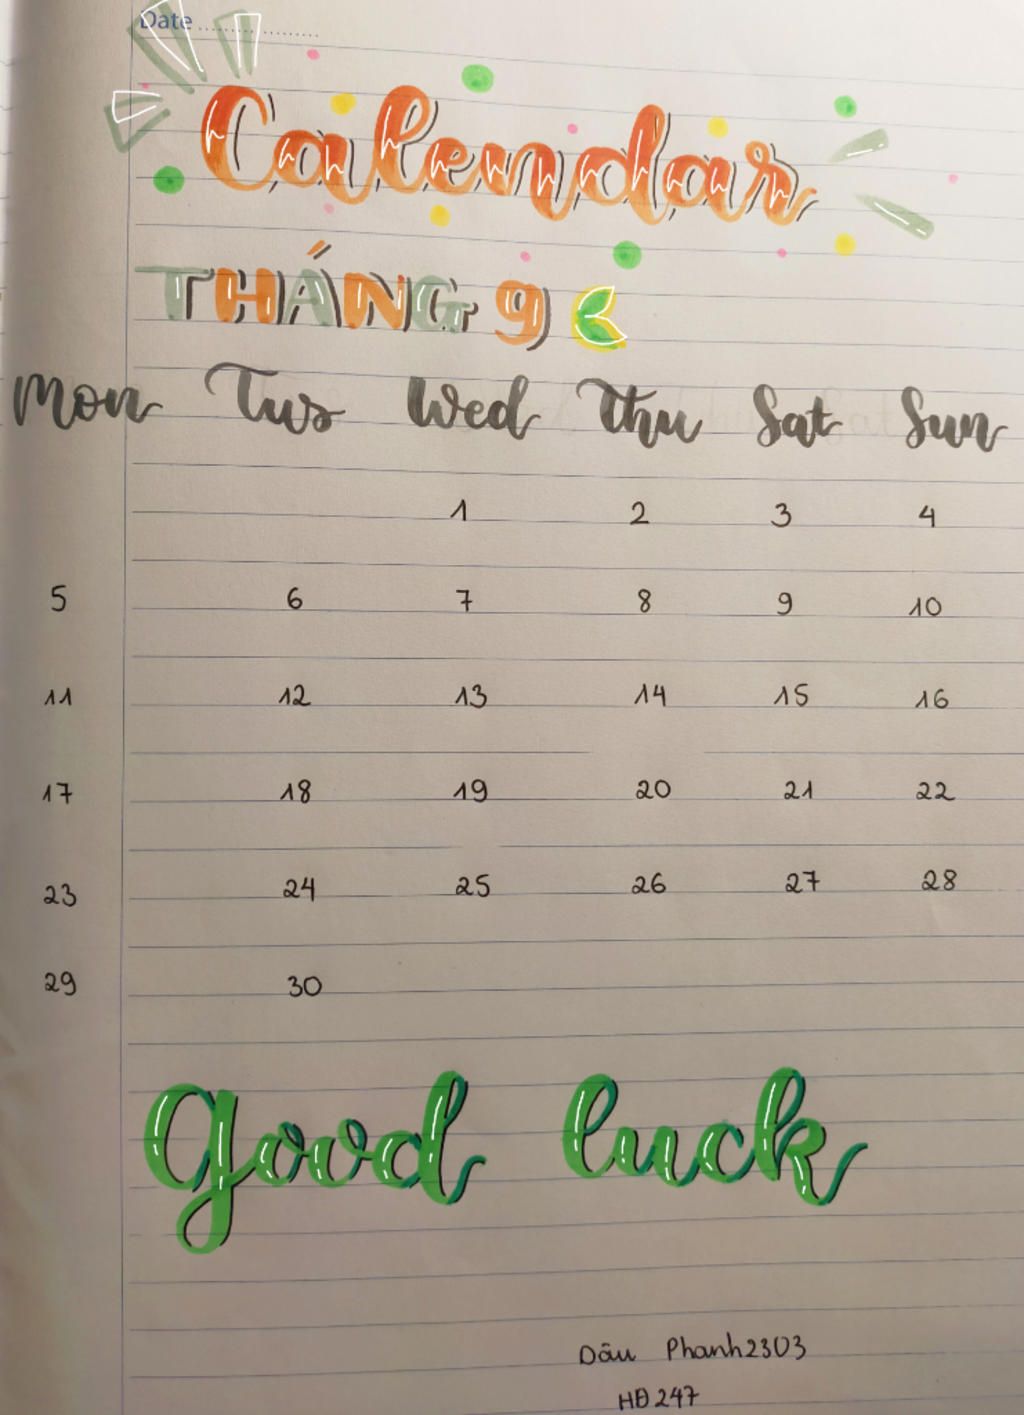 Date
Calendar
THÁNG 9
Mon Tus Wed Thu Sat Sun
1 2 3 4
5 6 7 8 9 10
11 12 13 14 15 16
17 18 19 20 21 22
23 24 25 26 27 28
29 30
Good luck
Dâu Phanh2303
HĐ247